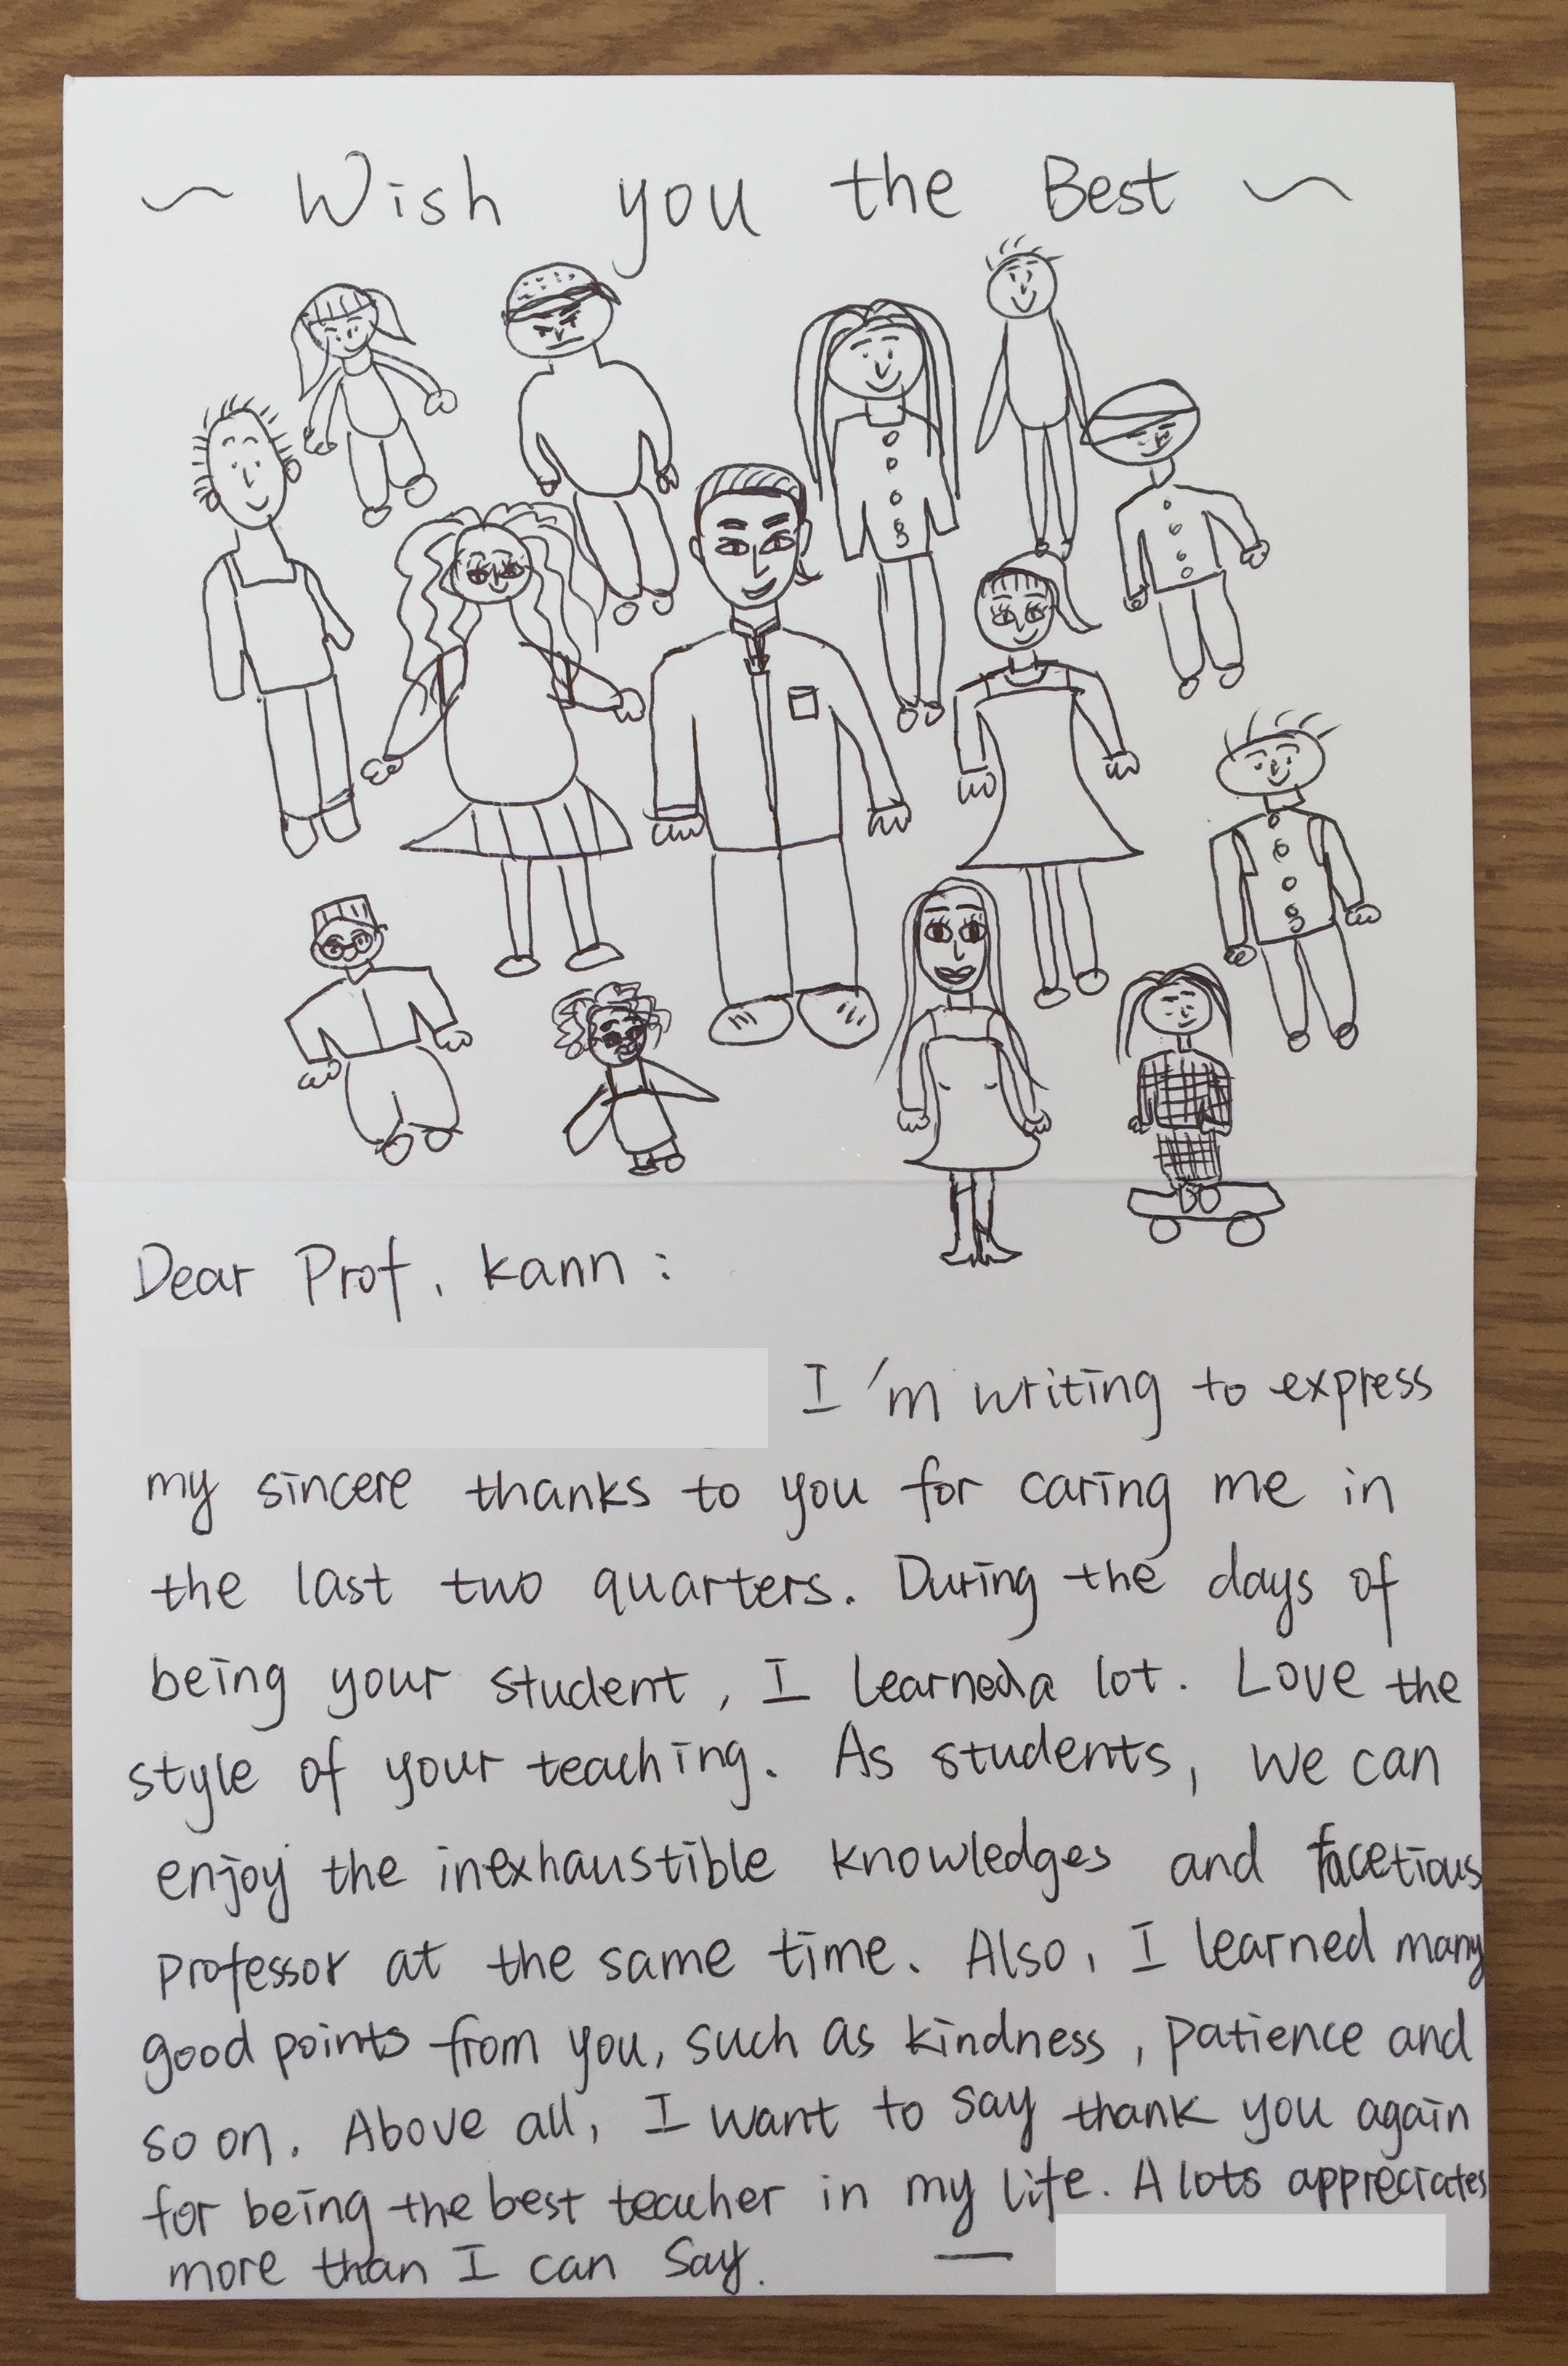 ~ Wish you the Best ~
Dear Prof. kann:
I'm writing to express
my sincere thanks to you for caring me in
the last two quarters. During the days of
being your student, I learned a lot. Love the
style of your teaching. As students, we can
enjoy the inexhaustible knowledges and facetious
professor at the same time. Also, I learned many
good points from you, such as kindness, patience and
so on. Above all, I want to say thank you again
for being the best teacher in my life. A lots appreciates
more than I can say. —